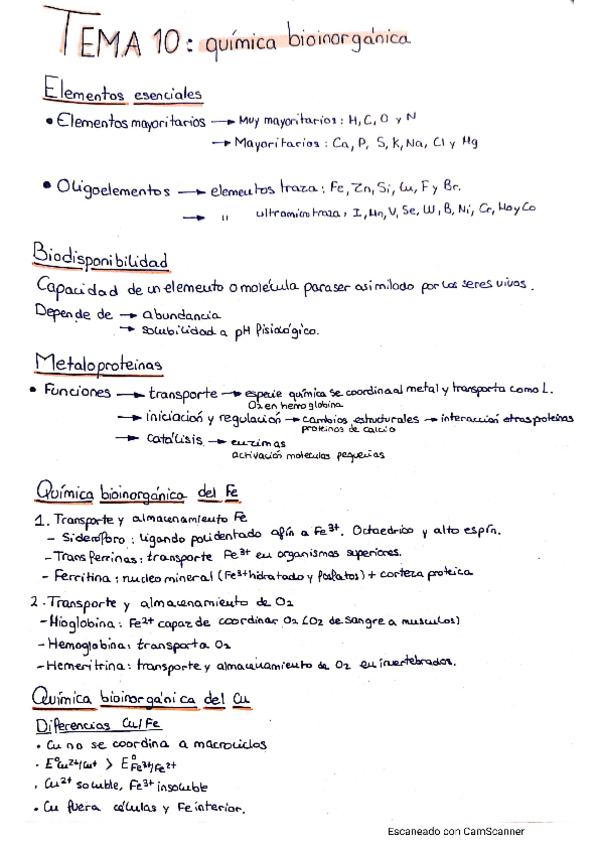 TEMA 10: química bioinorgánica
Elementos esenciales
• Elementos mayoritarios → Muy mayoritarios: H, C, O y N
→ Mayoritarios: Ca, P, S, K, Na, Cl y Mg
• Oligoelementos → elementos traza: Fe, Zn, Si, Cu, F y Br.
→ " ultramicrotraza: I, Mn, V, Se, W, B, Ni, Cr, Mo y Co
Biodisponibilidad
Capacidad de un elemento o molécula para ser asimilado por los seres vivos.
Depende de → abundancia
→ solubilidad a pH fisiológico.
Metaloproteinas
• Funciones → transporte → especie química se coordina al metal y transporta como L.
O2 en hemoglobina
→ iniciación y regulación → cambios estructurales → interacción otras proteinas
proteinas de calcio
→ catálisis → enzimas
activación moleculas pequeñas
Química bioinorgánica del Fe
1. Transporte y almacenamiento Fe
- Sideróforo: ligando polidentado afín a Fe3+. Octaedrico y alto espín.
- Transferrinas: transporte Fe3+ en organismos superiores.
- Ferritina: nucleo mineral (Fe3+ hidratado y fosfatos) + corteza proteica
2. Transporte y almacenamiento de O2
- Mioglobina: Fe2+ capaz de coordinar O2 (O2 de sangre a musculos)
- Hemoglobina: transporta O2
- Hemeritrina: transporte y almacenamiento de O2 en invertebrados.
Química bioinorgánica del Cu
Diferencias Cu/Fe
• Cu no se coordina a macrociclos
• E°Cu2+/Cu+ > E°Fe3+/Fe2+
• Cu2+ soluble, Fe3+ insoluble
• Cu fuera células y Fe interior.
Escaneado con CamScanner